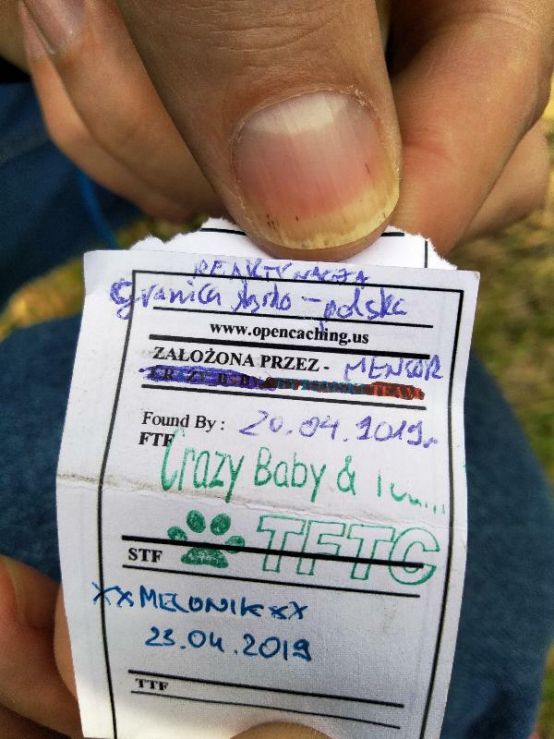 REAKTYWACJA
granica - polska
www.opencaching.us
ZAŁOŻONA PRZEZ - MENSOR
Found By : 20.04.2019r
FTF
Crazy Baby &
TFTC
STF
xXMELONIKxX
23.04.2019
TTF